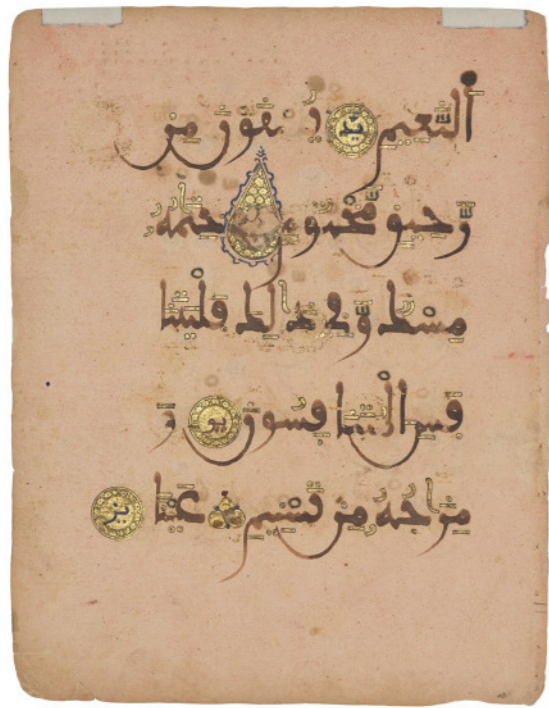 ٱلنَّعِيمِ يد يُسْقَوْنَ مِن
رَّحِيقٍ مَّخْتُومٍ خِتَٰمُهُۥ
مِسْكٌ وَفِى ذَٰلِكَ فَلْيَتَنَا
فَسِ ٱلْمُتَنَٰفِسُونَ يو وَ
مِزَاجُهُۥ مِن تَسْنِيمٍ عَيْنًا يز